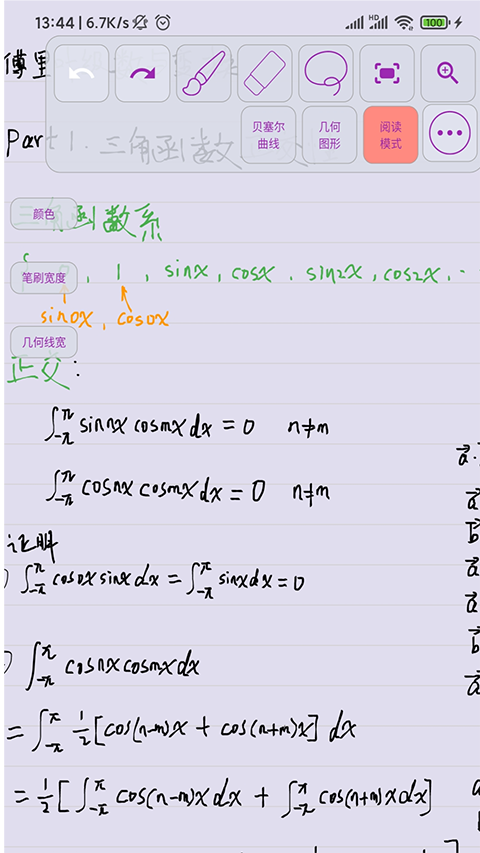 13:44 | 6.7K/s HD 100
傅里
贝塞尔曲线 几何图形 阅读模式
Part 1. 三角函数
颜色
三角函数系
笔刷宽度
, 1, sinx, cosx, sin2x, cos2x, ..
sin0x, cos0x
几何线宽
正交:
∫_{-π}^{π} sinnx cosmx dx = 0 n≠m
∫_{-π}^{π} cosnx cosmx dx = 0 n≠m
证明
) ∫_{-π}^{π} cos0x sinx dx = ∫_{-π}^{π} sinx dx = 0
) ∫_{-π}^{π} cosnx cosmx dx
= ∫_{-π}^{π} 1/2 [cos(n-m)x + cos(n+m)x] dx
= 1/2 [∫_{-π}^{π} cos(n-m)x dx + ∫_{-π}^{π} cos(n+m)x dx]